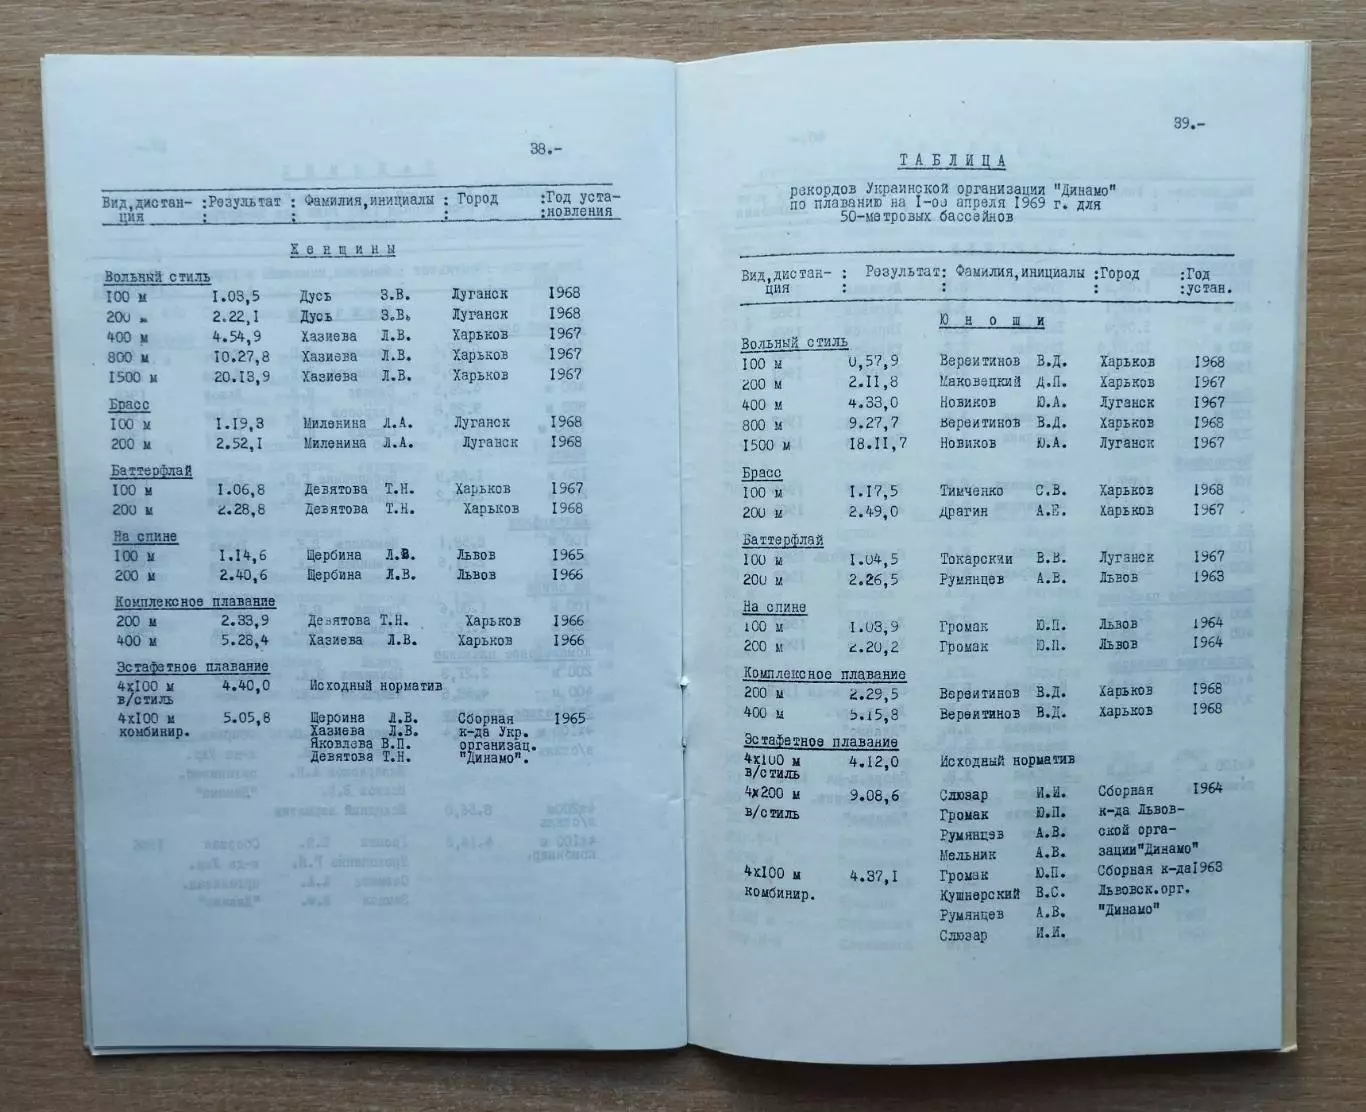 38.-
Вид,дистан- :Результат : Фамилия,инициалы : Город :Год уста-
ция : : : :новления
Женщины
Вольный стиль
100 м 1.03,5 Дусь З.В. Луганск 1968
200 м 2.22,1 Дусь З.В. Луганск 1968
400 м 4.54,9 Хазиева Л.В. Харьков 1967
800 м 10.27,8 Хазиева Л.В. Харьков 1967
1500 м 20.13,9 Хазиева Л.В. Харьков 1967
Брасс
100 м 1.19,3 Миленина Л.А. Луганск 1968
200 м 2.52,1 Миленина Л.А. Луганск 1968
Баттерфлай
100 м 1.06,8 Девятова Т.Н. Харьков 1967
200 м 2.28,8 Девятова Т.Н. Харьков 1968
На спине
100 м 1.14,6 Щербина Л.В. Львов 1965
200 м 2.40,6 Щербина Л.В. Львов 1966
Комплексное плавание
200 м 2.33,9 Девятова Т.Н. Харьков 1966
400 м 5.28,4 Хазиева Л.В. Харьков 1966
Эстафетное плавание
4х100 м 4.40,0 Исходный норматив
в/стиль
4х100 м 5.05,8 Щербина Л.В. Сборная 1965
комбинир. Хазиева Л.В. к-да Укр.
Яковлева В.П. организац.
Девятова Т.Н. "Динамо".
39.-
ТАБЛИЦА
рекордов Украинской организации "Динамо"
по плаванию на 1-ое апреля 1969 г. для
50-метровых бассейнов
Вид,дистан- : Результат: Фамилия,инициалы :Город :Год
ция : : : :устан.
Юноши
Вольный стиль
100 м 0,57,9 Вереитинов В.Д. Харьков 1968
200 м 2.11,8 Маковецкий Д.П. Харьков 1967
400 м 4.33,0 Новиков Ю.А. Луганск 1967
800 м 9.27,7 Вереитинов В.Д. Харьков 1968
1500 м 18.11,7 Новиков Ю.А. Луганск 1967
Брасс
100 м 1.17,5 Тимченко С.В. Харьков 1968
200 м 2.49,0 Драгин А.Е. Харьков 1967
Баттерфлай
100 м 1.04,5 Токарский В.В. Луганск 1967
200 м 2.26,5 Румянцев А.В. Львов 1963
На спине
100 м 1.03,9 Громак Ю.П. Львов 1964
200 м 2.20,2 Громак Ю.П. Львов 1964
Комплексное плавание
200 м 2.29,5 Вереитинов В.Д. Харьков 1968
400 м 5.15,8 Вереитинов В.Д. Харьков 1968
Эстафетное плавание
4х100 м 4.12,0 Исходный норматив
в/стиль
4х200 м 9.08,6 Слюзар И.И. Сборная 1964
в/стиль Громак Ю.П. к-да Львов-
Румянцев А.В. ской орга-
Мельник А.В. зации"Динамо"
4х100 м 4.37,1 Громак Ю.П. Сборная к-да1963
комбинир. Кушнерский В.С. Львовск.орг.
Румянцев А.В. "Динамо"
Слюзар И.И.